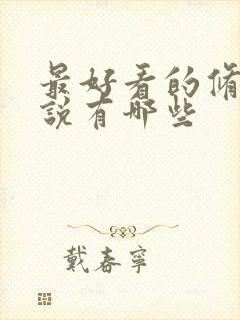 最好看的脩
說有哪些
戴春寧